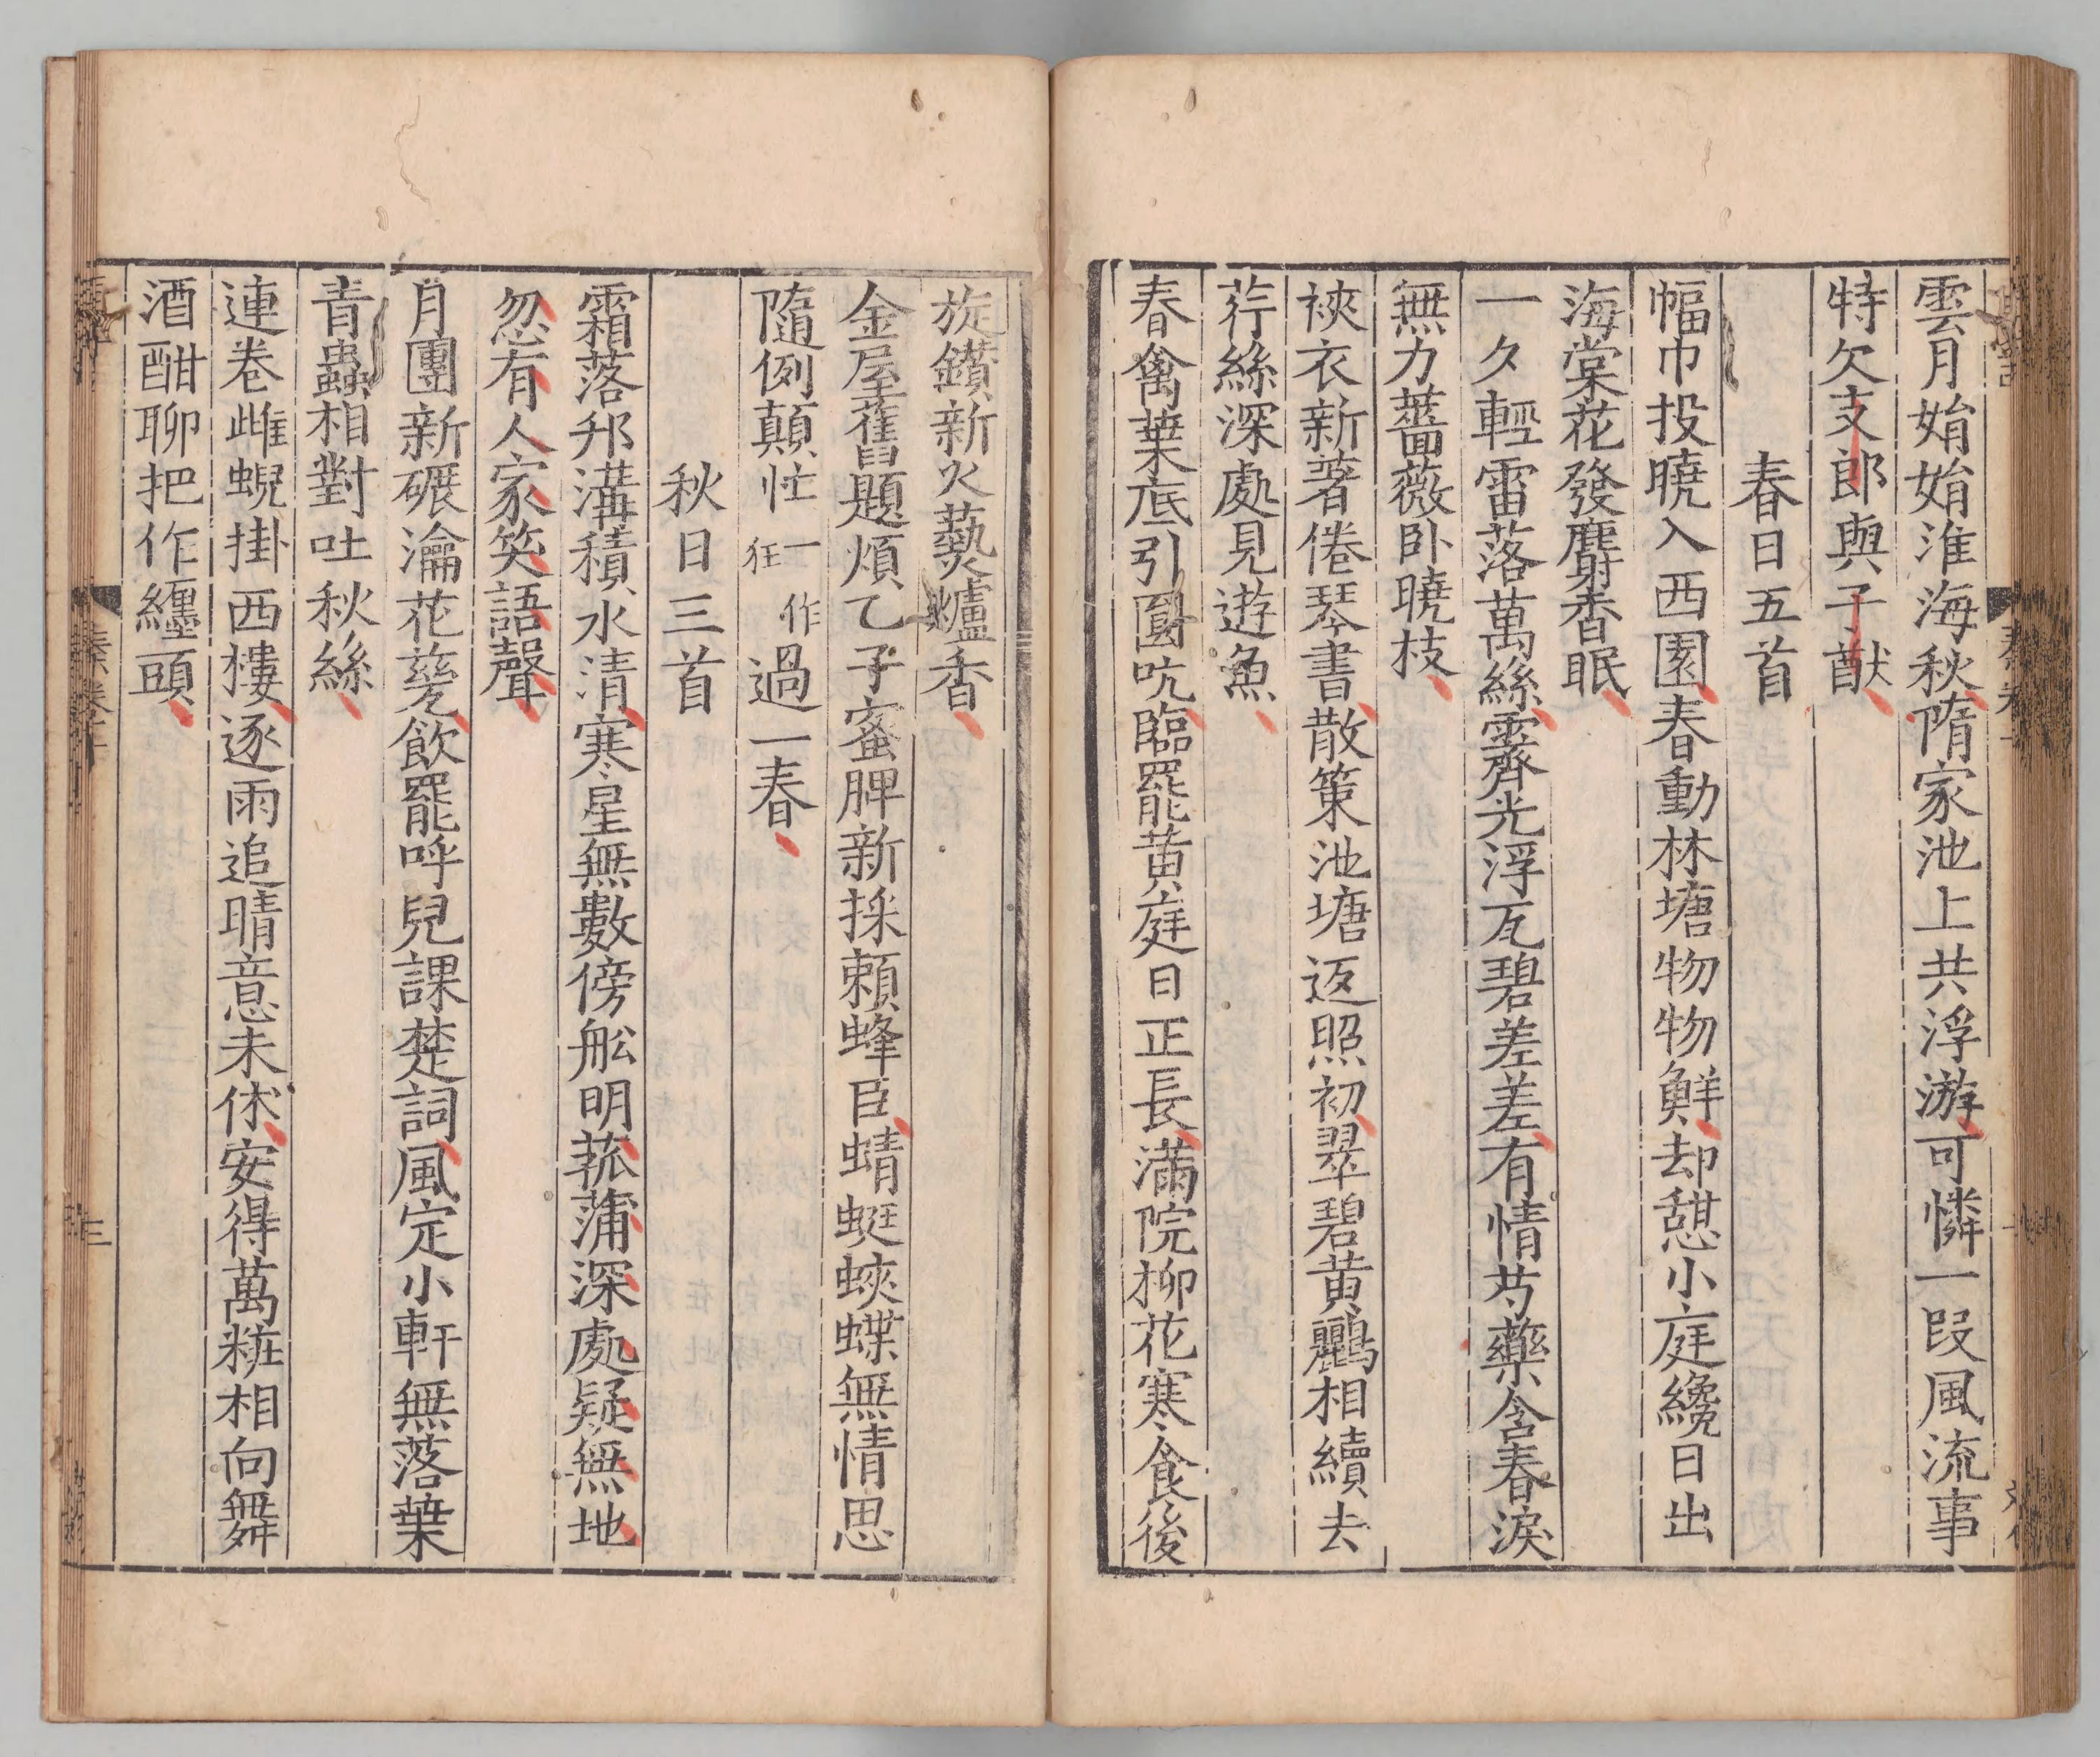 雲月始始淮海秋隋家池上共浮游可憐一段風流事
特欠支郎與子猷
春日五首
幅巾投曉入西園春動林塘物物鮮却憩小庭纔日出
海棠花發麝香眠
一夕輕雷落萬絲霽光浮瓦碧差差有情芍藥含春淚
無力薔薇卧曉枝
裌衣新著倦琴書散策池塘返照初翠碧黃鸝相續去
荇絲深處見遊魚
春禽葉底引圓吭臨罷黃庭日正長滿院柳花寒食後
旋鑽新火爇爐香
金屋舊題煩乙子蜜脾新採賴蜂臣蜻蜓蛺蝶無情思
隨例顛忙一作狂過一春
秋日三首
霜落邗溝積水清寒星無數傍舩明菰蒲深處疑無地
忽有人家笑語聲
月團新碾瀹花甆飲罷呼兒課楚詞風定小軒無落葉
青蟲相對吐秋絲
連卷雌蜺掛西樓逐雨追晴意未休安得萬粧相向舞
酒酣聊把作纏頭